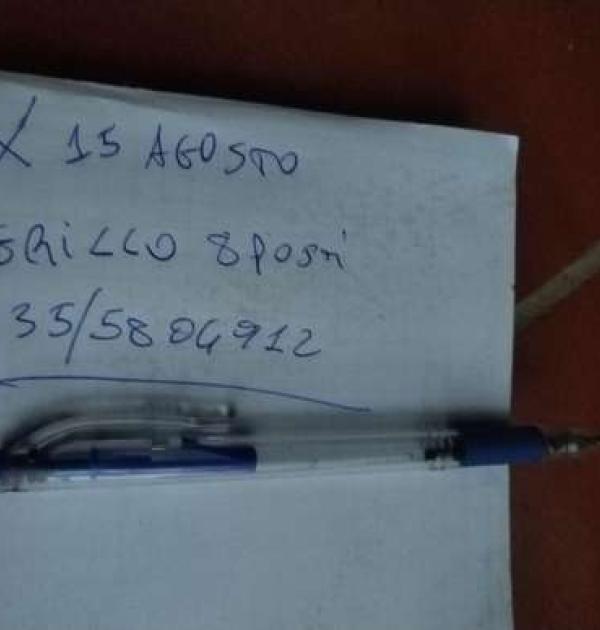 X 15 AGOSTO
GRILLO 8 POSTI
35/5804912